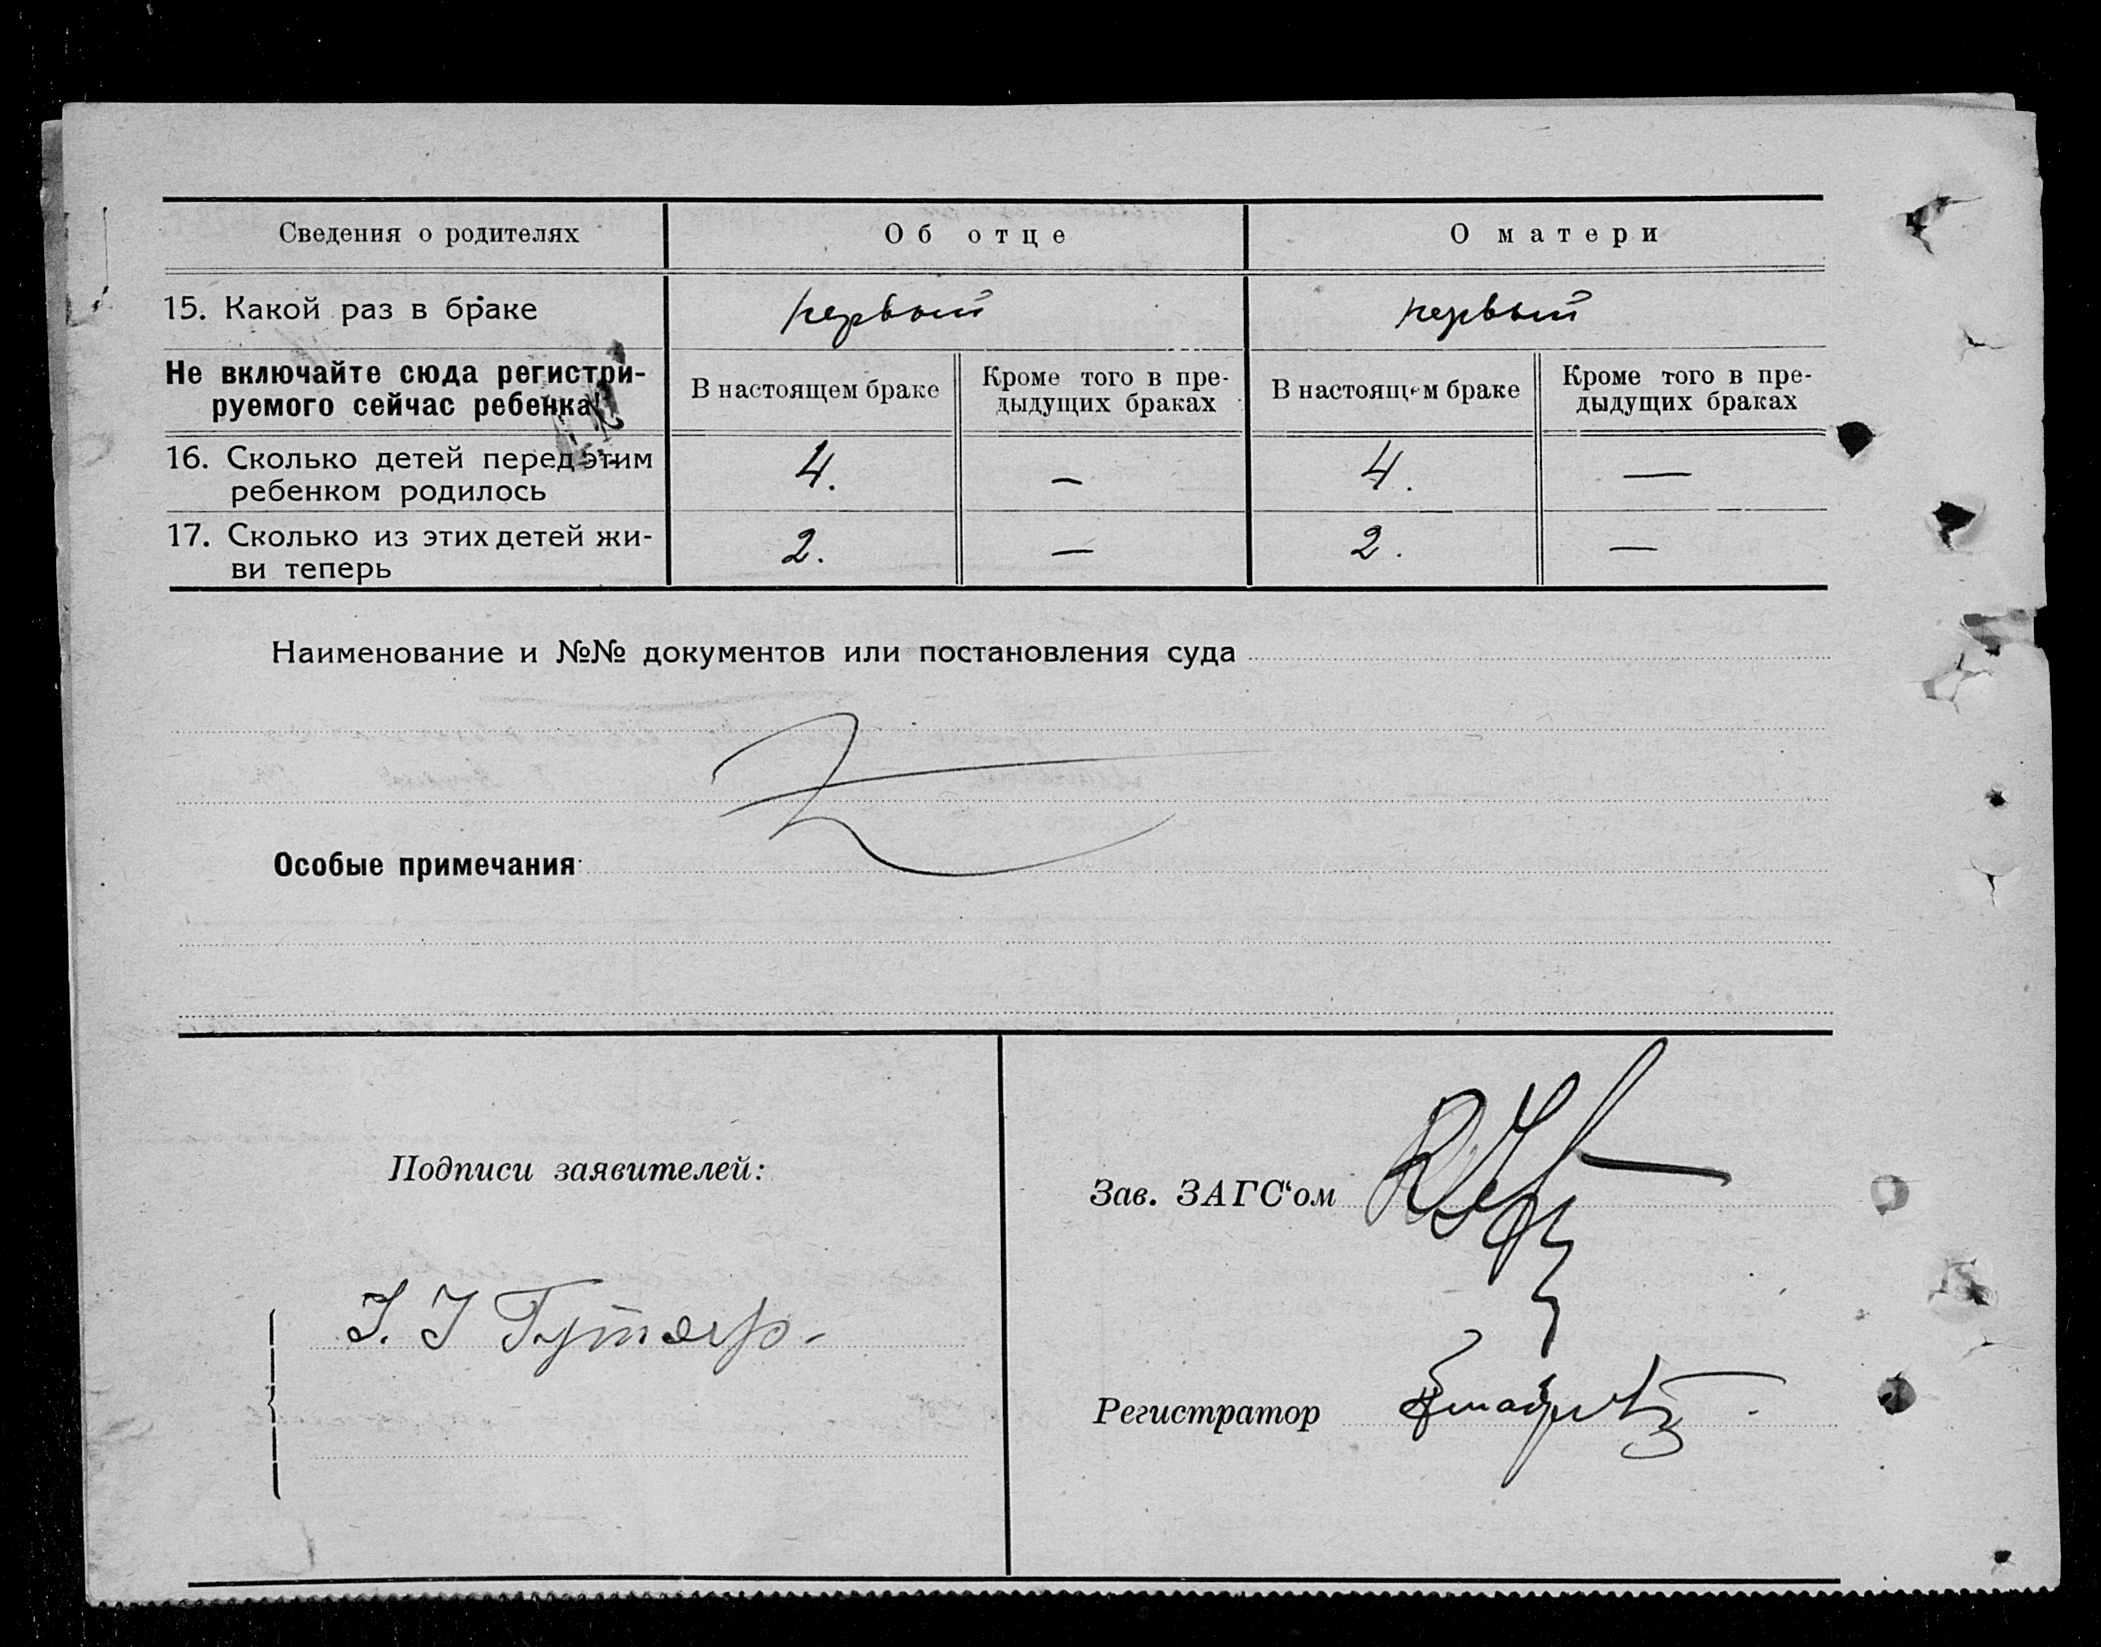 Сведения о родителях
Об отце
О матери
15. Какой раз в браке
первый
первый
Не включайте сюда регистри-
руемого сейчас ребенка
В настоящем браке
Кроме того в пре-
дыдущих браках
В настоящем браке
Кроме того в пре-
дыдущих браках
16. Сколько детей перед этим
ребенком родилось
4.
—
4.
—
17. Сколько из этих детей жи-
ви теперь
2.
—
2.
—
Наименование и №№ документов или постановления суда
Особые примечания
Подписи заявителей:
Зав. ЗАГС‘ом
Регистратор